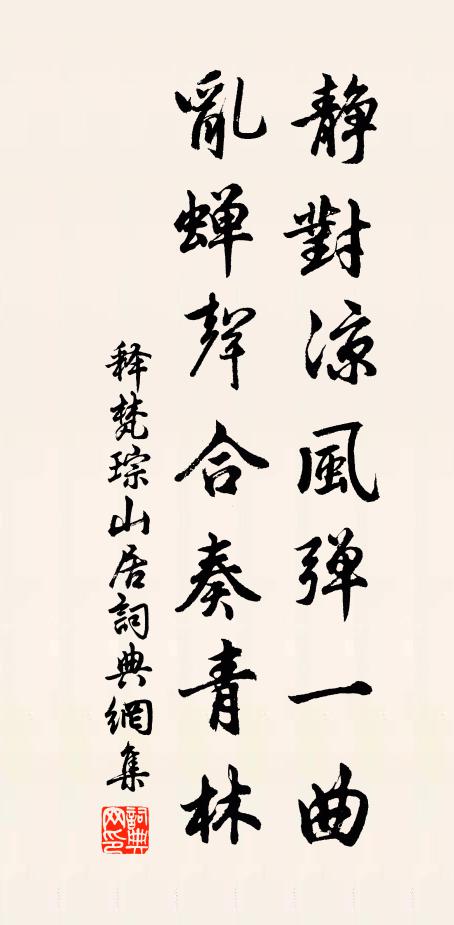 靜對涼風弹一曲
亂蝉聲合奏青林
释梵琮山居詞典網集
詞典網印